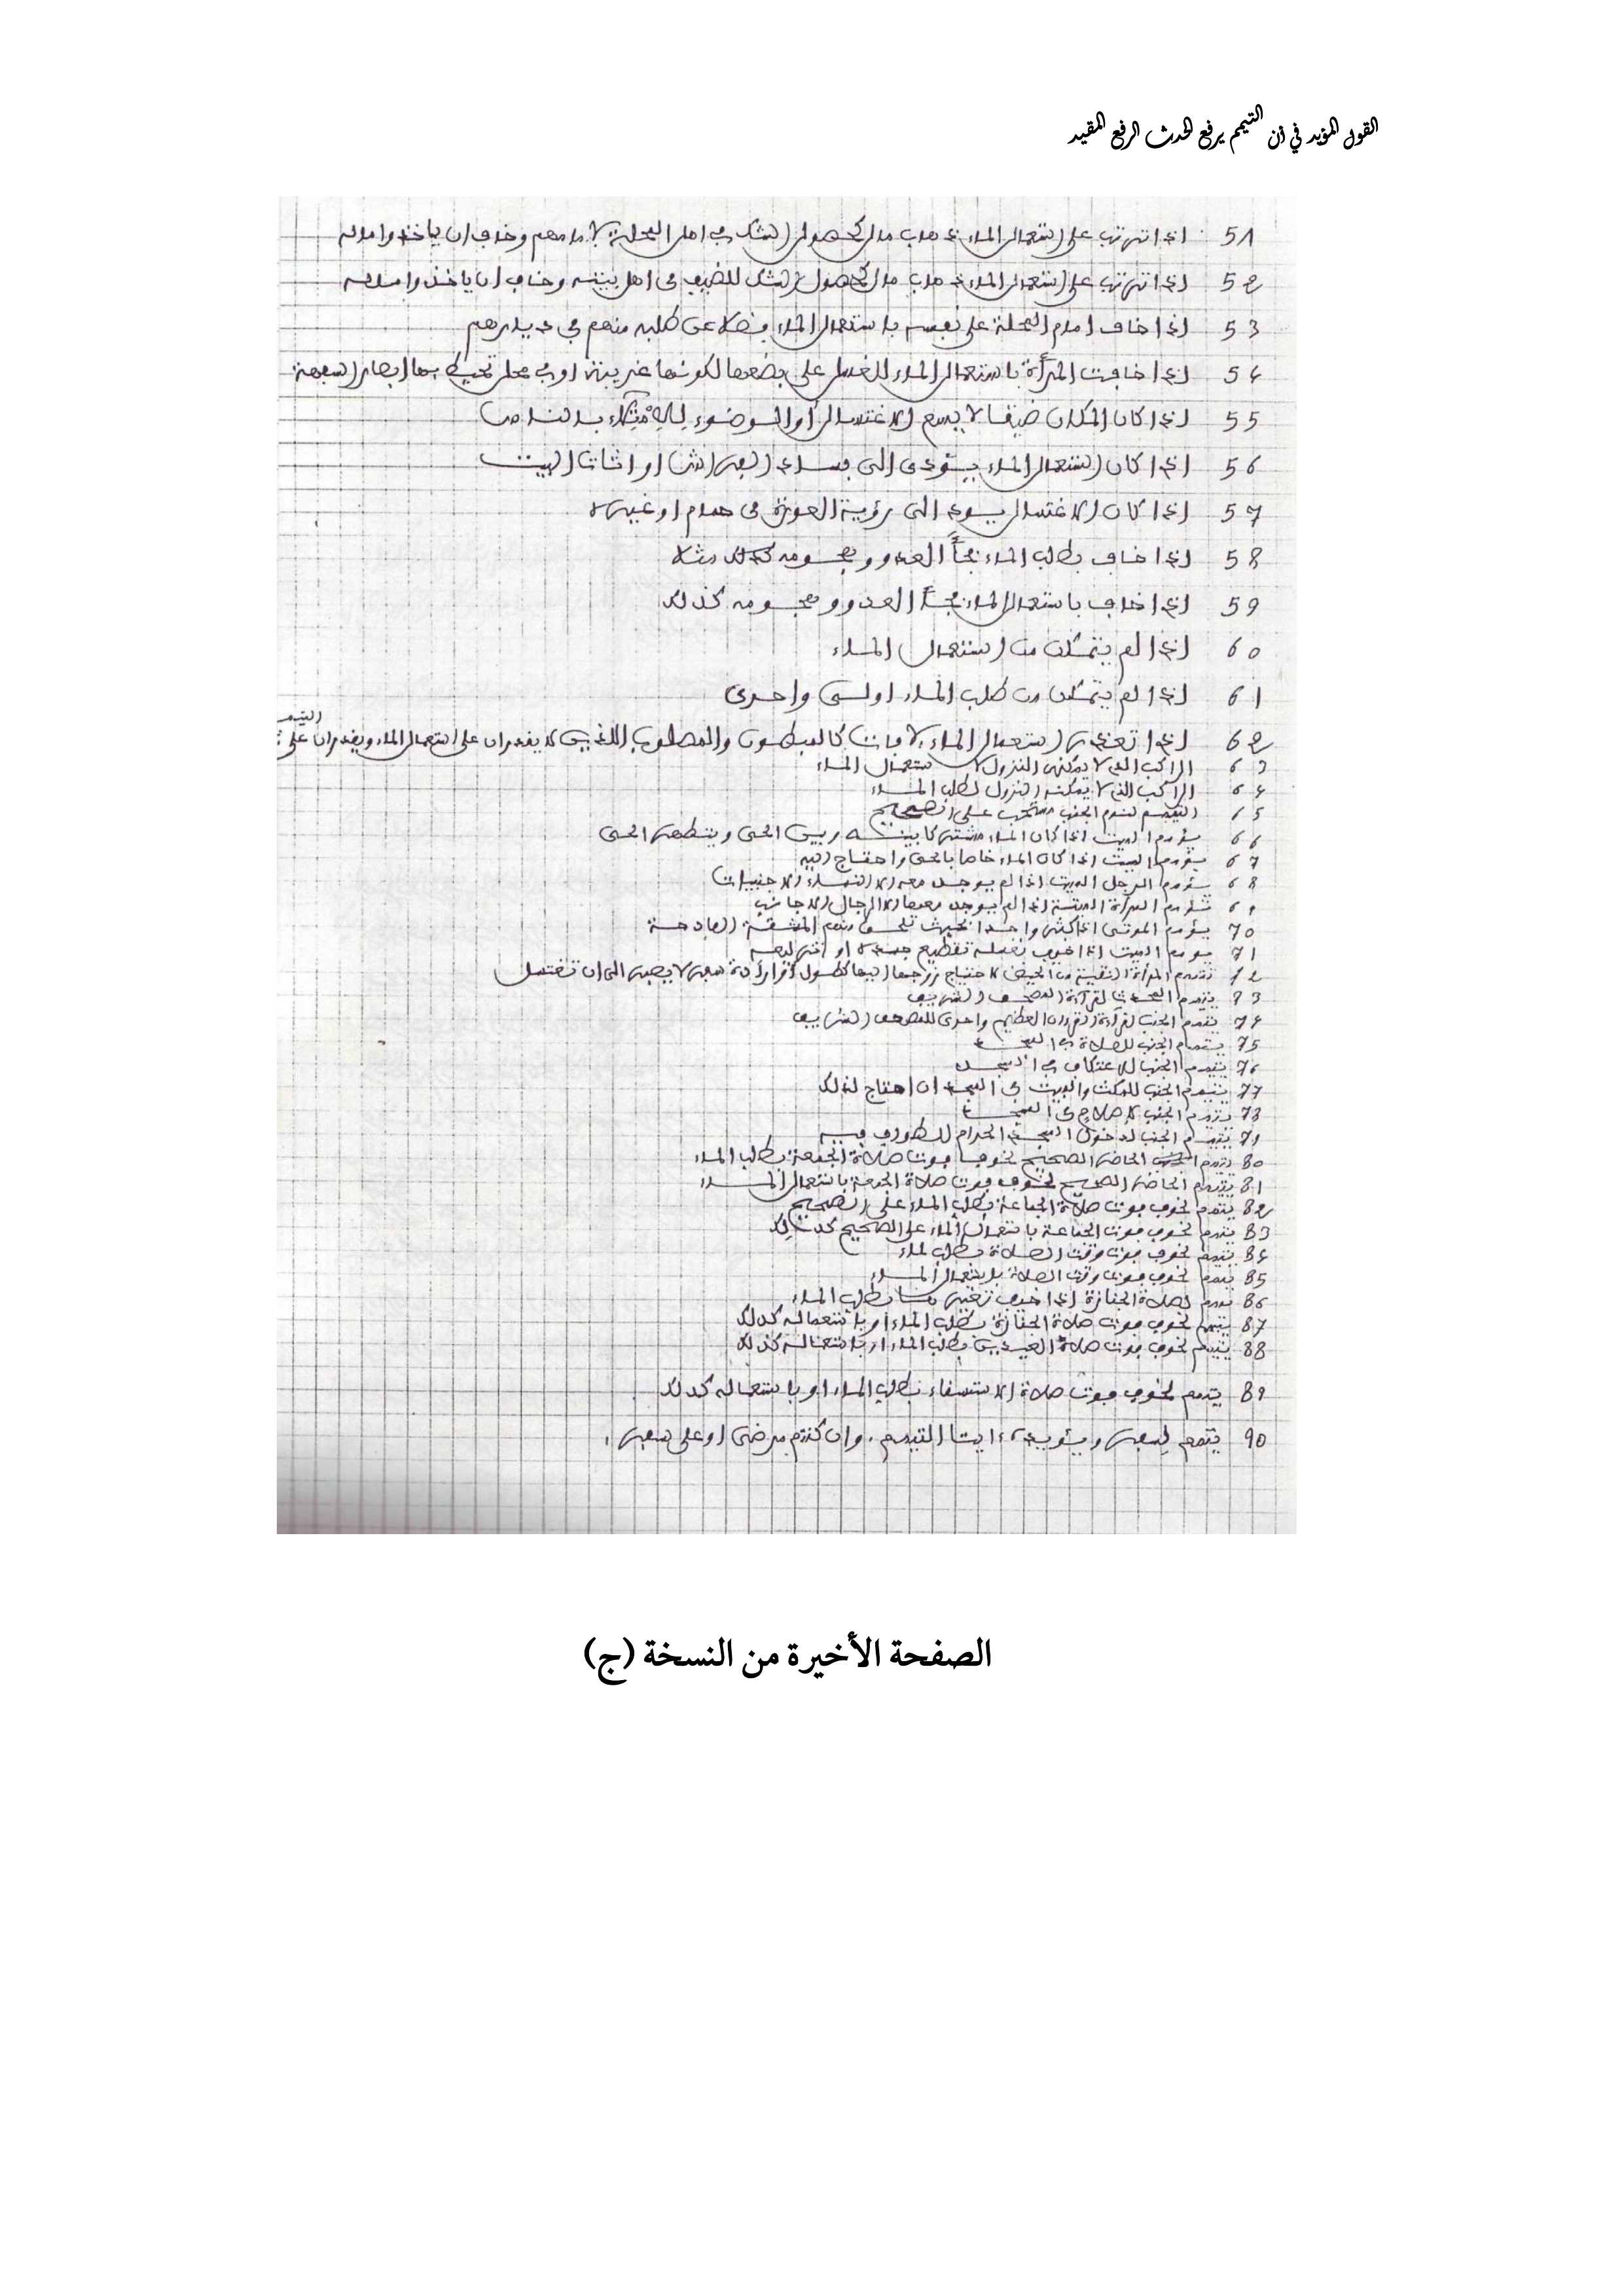 القول المؤيد في أن التيمم يرفع الحدث الرفع المقيد
51 إذا ترتب على استعمال الماء ذهاب مال لحصول الشك في أهل المحلة لإمامهم وخاف أن يأخذوا ماله
52 إذا ترتب على استعمال الماء ذهاب مال لحصول الشك للضيف في أهل بيته وخاف أن يأخذوا ماله
53 إذا خاف إمام المحلة على نفسه باستعمال الماء فضلا عن طلبه منهم في ديارهم
54 إذا خافت المرأة باستعمال الماء للغسل على بضعها لكونها غريبة أو في محل تحيط بها أبصار السفهة
55 إذا كان المكان ضيقا لا يسع الاغتسال أو الوضوء
56 إذا كان استعمال الماء يؤدي إلى فساد الفراش أو أثاث البيت
57 إذا كان الاغتسال يؤدي إلى رؤية العورة في حمام أو غيره
58 إذا خاف بطلب الماء فجأ العدو وهجومه مثلا
59 إذا خاف باستعمال الماء فجأ العدو وهجومه كذلك
60 إذا لم يتمكن من استعمال الماء
61 إذا لم يتمكن من طلب الماء أولى وأحرى
62 إذا تعذر استعمال الماء لآفات كالمبطون والمصلوب اللذين لا يقدران على استعمال الماء ويقدران على التيمم
63 الراكب الذي لا يمكنه النزول لاستعمال الماء
64 الراكب الذي لا يمكنه النزول لطلب الماء
65 التيمم لنوم الجنب مستحب على الصحيح
66 ييمم الميت إذا كان الماء مشتركا بينه وبين الحي ويتطهر الحي
67 ييمم الميت إذا كان الماء خاصا بالحي واحتاج إليه
68 ييمم الرجل الميت إذا لم يوجد معه إلا النساء الأجنبيات
69 تيمم المرأة الميتة إذا لم يوجد معها إلا الرجال الأجانب
70 ييمم الموتى إذا كثروا جدا بحيث تلحق بهم المشقة الفادحة
71 ييمم الميت إذا خيف بغسله تقطيع جسده أو
72 تتيمم المرأة النقية من الحيض لاحتياج زوجها إليها لطول سفره لا يصبر إلى أن تغتسل
73 يتيمم المحدث لقراءة المصحف الشريف
74 يتيمم الجنب لقراءة القرآن العظيم وأحرى للمصحف الشريف
75 يتيمم الجنب للصلاة في المسجد
76 يتيمم الجنب للاعتكاف في المسجد
77 يتيمم الجنب للمكث والمبيت في المسجد إن احتاج لذلك
78 يتيمم الجنب لإصلاح في المسجد
79 يتيمم الجنب لدخول المسجد الحرام للطواف فيه
80 يتيمم الحاضر الصحيح لخوف فوت صلاة الجمعة بطلب الماء
81 يتيمم الحاضر الصحيح لخوف فوت صلاة الجمعة باستعمال الماء
82 يتيمم لخوف فوت صلاة الجماعة بطلب الماء على الصحيح
83 يتيمم لخوف فوت الجماعة باستعمال الماء على الصحيح كذلك
84 يتيمم لخوف فوت وقت الصلاة بطلب الماء
85 يتيمم لخوف فوت وقت الصلاة باستعمال الماء
86 يتيمم لصلاة الجنازة إذا خيف تغيرها بطلب الماء
87 يتيمم لخوف فوت صلاة الجنازة بطلب الماء أو باستعماله كذلك
88 يتيمم لخوف فوت صلاة العيدين بطلب الماء أو باستعماله كذلك
89 يتيمم لخوف فوت صلاة الاستسقاء بطلب الماء أو باستعماله كذلك
90 يتيمم لسفر ويؤيده آيتا التيمم. وإن كنتم مرضى أو على سفر.
الصفحة الأخيرة من النسخة (ج)